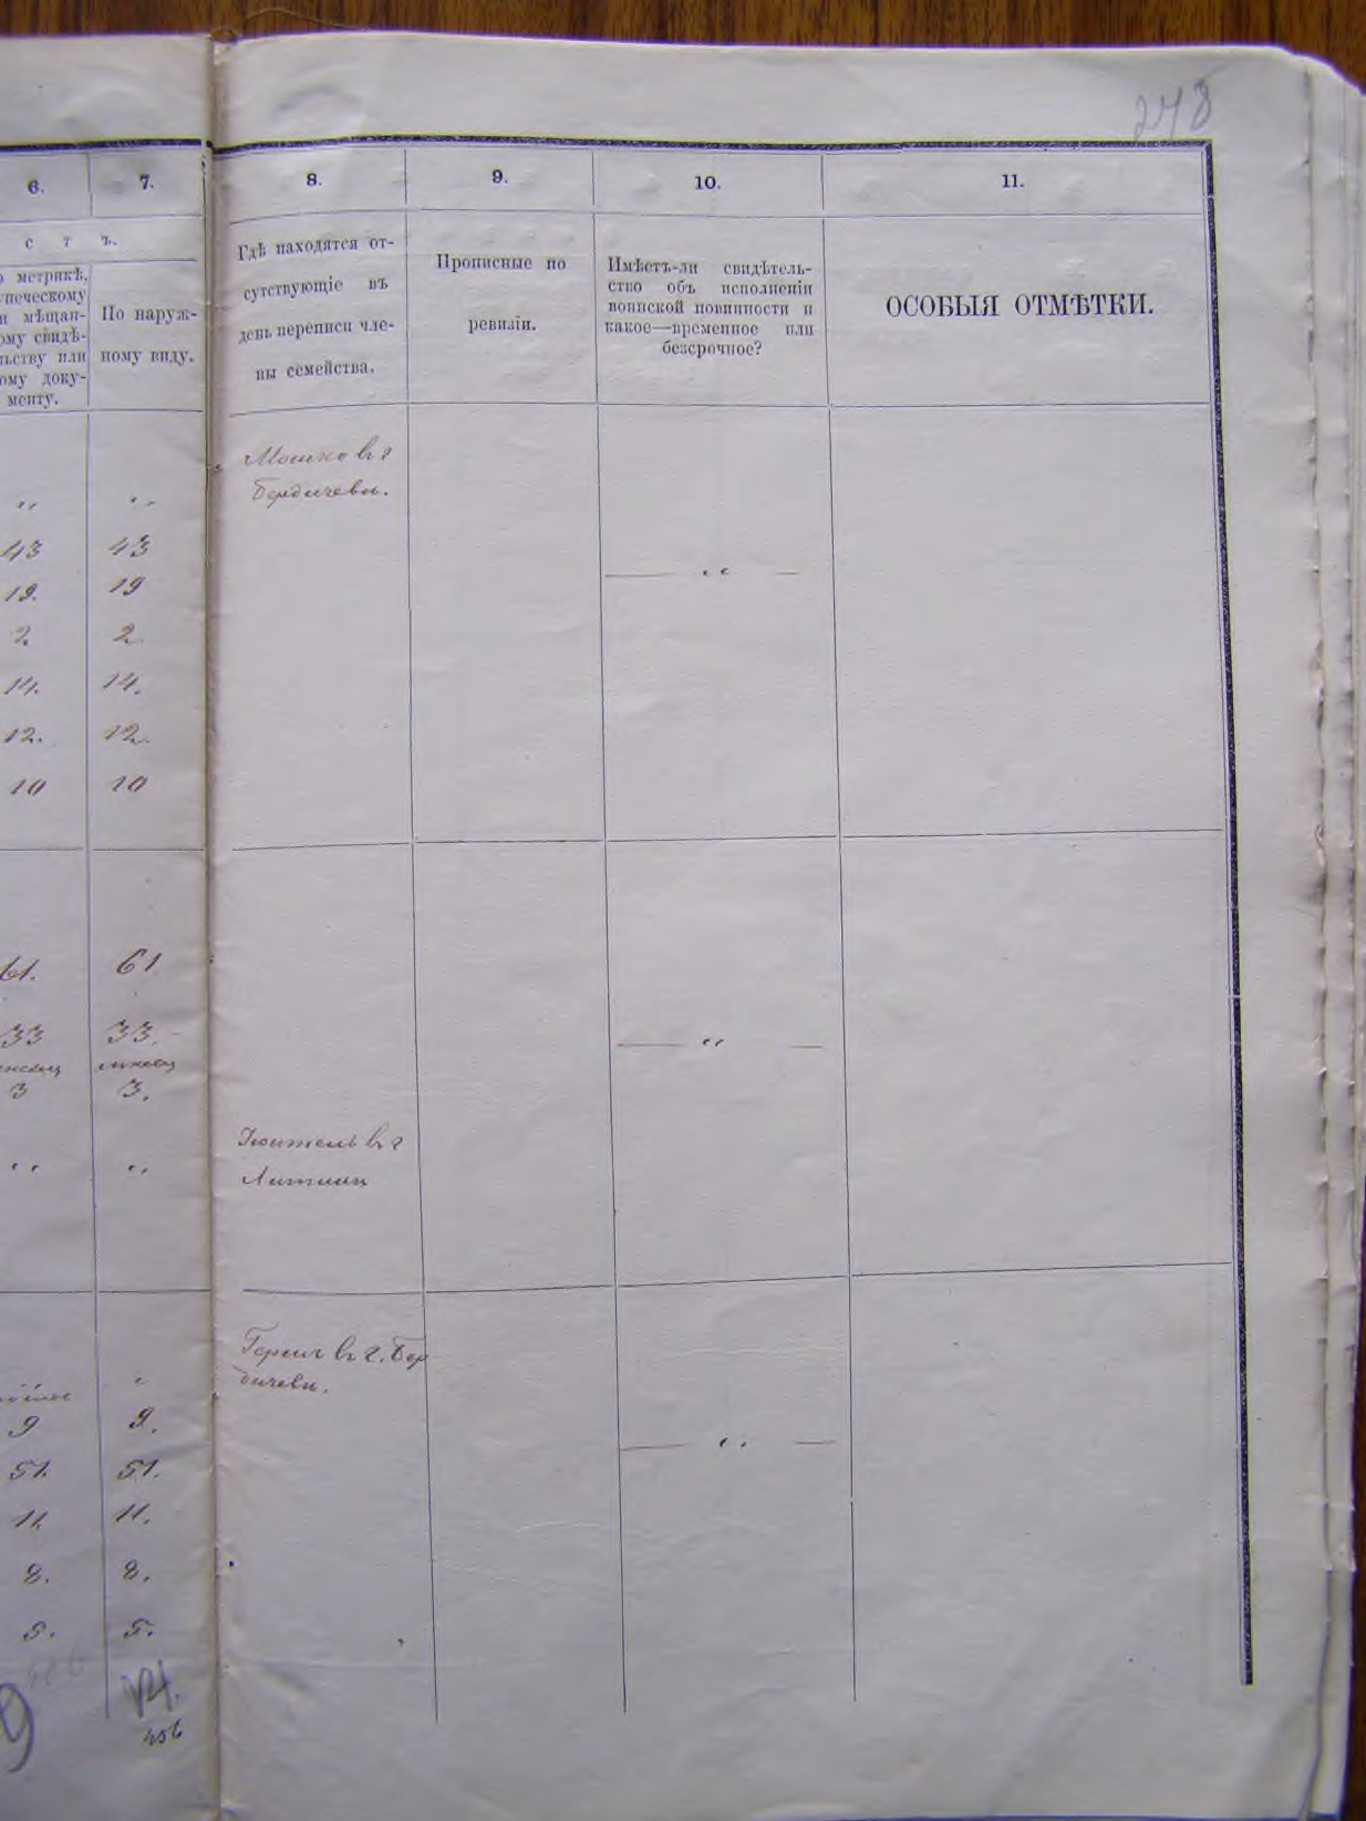 278
6. 7. 8. 9. 10. 11.
с т ъ.
о метрикѣ,
упеческому
и мѣщан-
ому свидѣ-
льству или
ому доку-
менту.
По наруж-
ному виду.
Гдѣ находятся от-
сутствующіе въ
день переписи чле-
ны семейства.
Прописные по
ревизіи.
Имѣетъ-ли свидѣтель-
ство объ исполненіи
воинской повинности и
какое—временное или
безсрочное?
ОСОБЫЯ ОТМѢТКИ.
Мошко въ г
Бердичевѣ.
„ „
43 43
19. 19
2 2.
14. 14.
12. 12.
10 10
— „ —
61. 61
33 33.
3 3.
„ „
— „ —
въ г
Литинѣ
Гершъ въ г. Бер
дичевѣ.
9 9.
51. 51.
— „ —
11. 11.
8. 8.
5. 5.
9
456